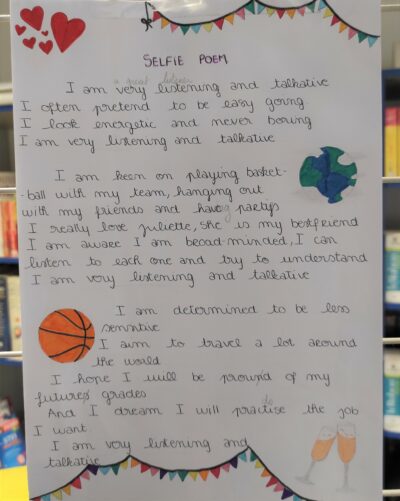 SELFIE POEM
a great listener
I am very listening and talkative
I often pretend to be easy going
I look energetic and never boring
I am very listening and talkative
I am keen on playing basket-
-ball with my team, hanging out
with my friends and having partys
I really love juliette, she is my bestfriend
I am aware I am broad-minded, I can
listen to each one and try to understand
I am very listening and talkative
I am determined to be less
sensitive
I aim to travel a lot around
the world
I hope I will be pround of my
futures grades
And I dream I will practise the job
I want.
I am very listening and
talkative